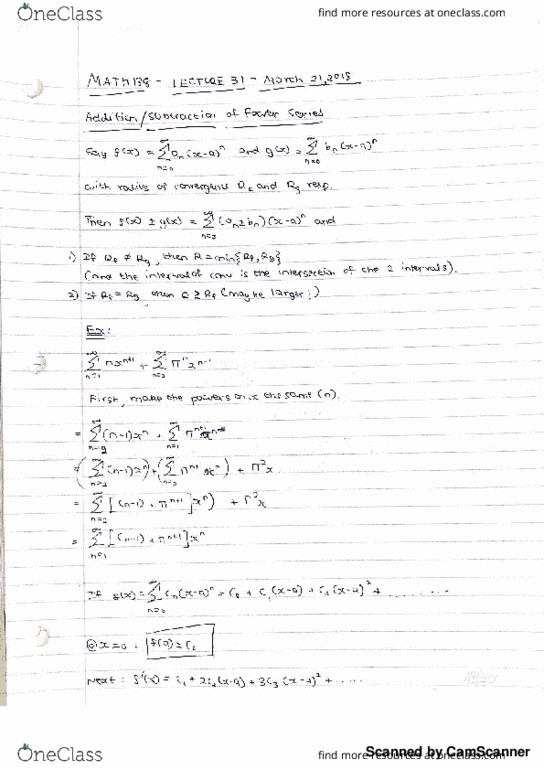 OneClass
find more resources at oneclass.com
MATH138 - LECTURE 31 - March 21, 2018
Addition/Subtraction of Fourier Series
Say f(x) = ∑_{n=0}^{∞} a_n (x-a)^n and g(x) = ∑_{n=0}^{∞} b_n (x-a)^n
with radius of convergence R_f and R_g resp.
Then f(x) ± g(x) = ∑_{n=0}^{∞} (a_n ± b_n)(x-a)^n and
1) If R_f ≠ R_g, then R = min{R_f, R_g}
(and the interval of conv is the intersection of the 2 intervals).
2) If R_f = R_g, then R ≥ R_f (may be larger!)
Ex:
∑_{n=1}^{∞} n x^{n+1} + ∑_{n=2}^{∞} π^n x^{n-1}
First, make the powers on x the same (n).
= ∑_{n=2}^{∞} (n-1)x^n + ∑_{n=1}^{∞} π^{n+1} x^n
= (∑_{n=2}^{∞} (n-1)x^n) + (∑_{n=2}^{∞} π^{n+1} x^n) + π^2 x
= ∑_{n=2}^{∞} [(n-1) + π^{n+1}] x^n) + π^2 x
= ∑_{n=1}^{∞} [(n-1) + π^{n+1}] x^n
If f(x) = ∑_{n=0}^{∞} c_n (x-a)^n = c_0 + c_1 (x-a) + c_2 (x-a)^2 + ........
@ x=a : f(a) = c_0
Next : f'(x) = c_1 + 2c_2 (x-a) + 3c_3 (x-a)^2 + .....
OneClass
find more resources at oneclass.com
Scanned by CamScanner